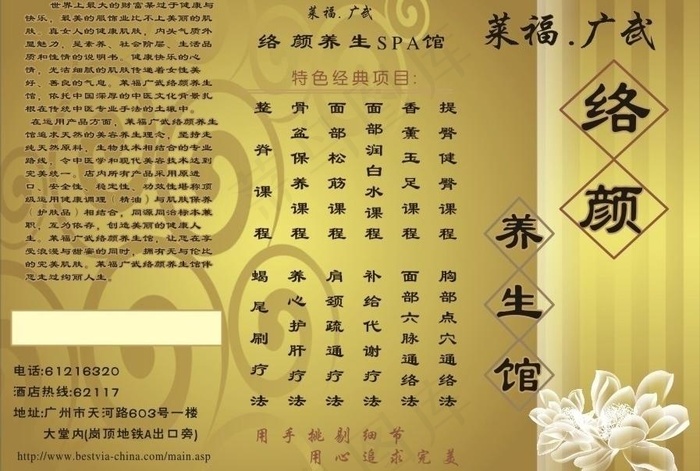 世界上最大的财富莫过于健康与
快乐，最美的服饰业比不上美丽的肌
肤，真女人的健康肌肤，内炎气质外
显魅力，是素养、社会阶层、生活品
质和性情的说明书。健康快乐的心
情，光洁细肌的肌肤传递着女性美
好、善良的气息。莱福广武络颜养生
馆，依托中国深厚的中医文化背景扎
根在传统中医专业手法的土壤中。
在运用产品方面，莱福广武络颜养生
馆追求天然的美容养生理念，坚持走
纯天然原料，生物技术相结合的专业
路线，令中医学和现代美容技术达到
完美统一。店内所有产品采用原进
口、安全性、稳定性、功效性堪称顶
级运用健康调理（精油）与肌肤保养
（护肤品）相结合，同源同治标本兼
职，互为依存，创造美丽的健康人
生。莱福广武络颜养生馆，让您在享
受浪漫与甜蜜的同时，拥有无与伦比
的完美肌肤。莱福广武络颜养生馆伴
您走过绚丽人生。
电话:61216320
酒店热线:62117
地址:广州市天河路603号一楼
大堂内(岗顶地铁A出口旁)
http://www.bestvia-china.com/main.asp
莱福.广武
络颜养生SPA馆
特色经典项目:
整脊课程
骨盆保养课程
面部松筋课程
面部润白水课程
香薰玉足课程
提臀健臀课程
蝎尾刷疗法
养心护肝疗法
肩颈疏通疗法
补给代谢疗法
面部六脉通络法
胸部点穴通络法
用手挑剔细节
用心追求完美
莱福.广武
络颜
养生馆